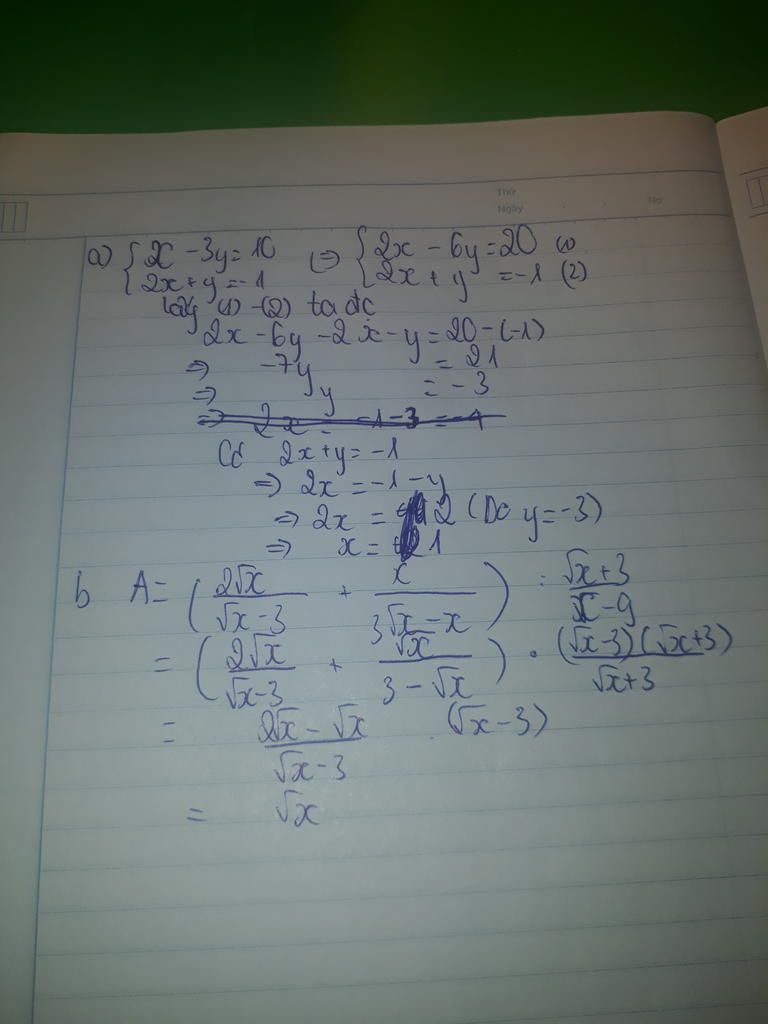 Thứ
Ngày No
a) { x - 3y = 10 ⇔ { 2x - 6y = 20 (1)
2x + y = -1 2x + y = -1 (2)
lấy (1) - (2) ta đc
2x - 6y - 2x - y = 20 - (-1)
⇒ -7y = 21
⇒ y = -3
Có 2x + y = -1
⇒ 2x = -1 - y
⇒ 2x = 2 (Do y = -3)
⇒ x = 1
b A = (2√x/(√x - 3) + x/(3√x - x)) : (√x + 3)/(x - 9)
= (2√x/(√x - 3) + √x/(3 - √x)) . (√x - 3)(√x + 3)/(√x + 3)
= (2√x - √x)/(√x - 3) . (√x - 3)
= √x